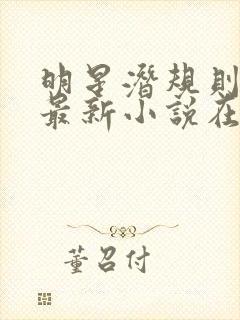 明星潜规则
最新小说在
董召付